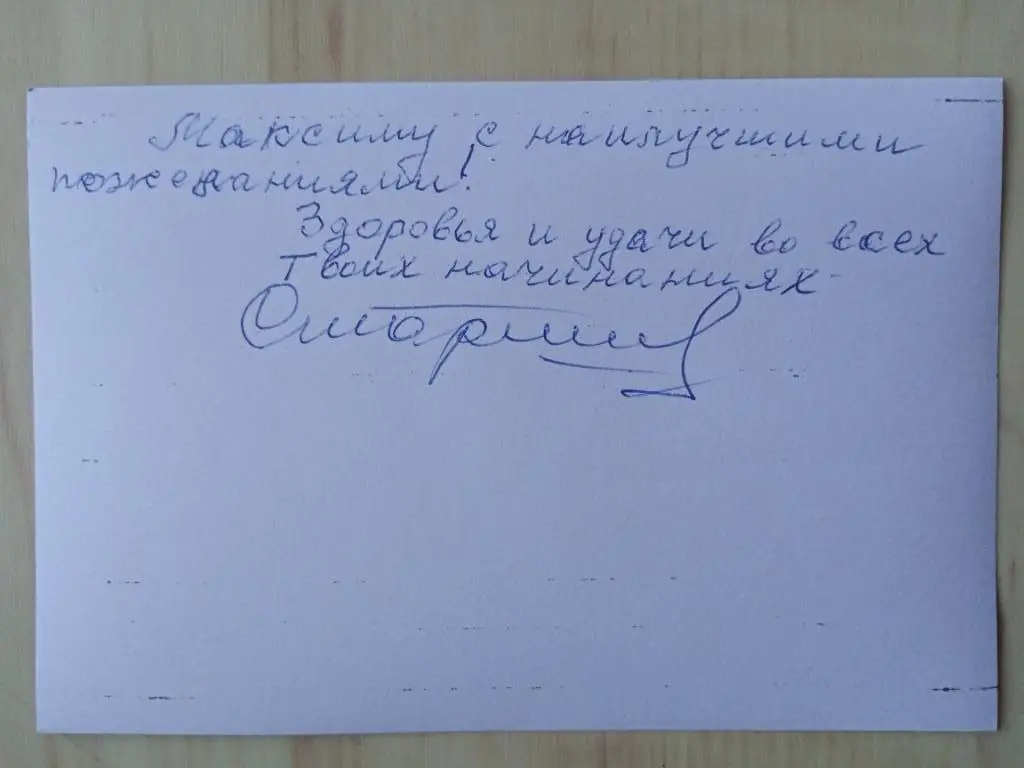 Максиму с наилучшими
пожеланиями!
Здоровья и удачи во всех
твоих начинаниях